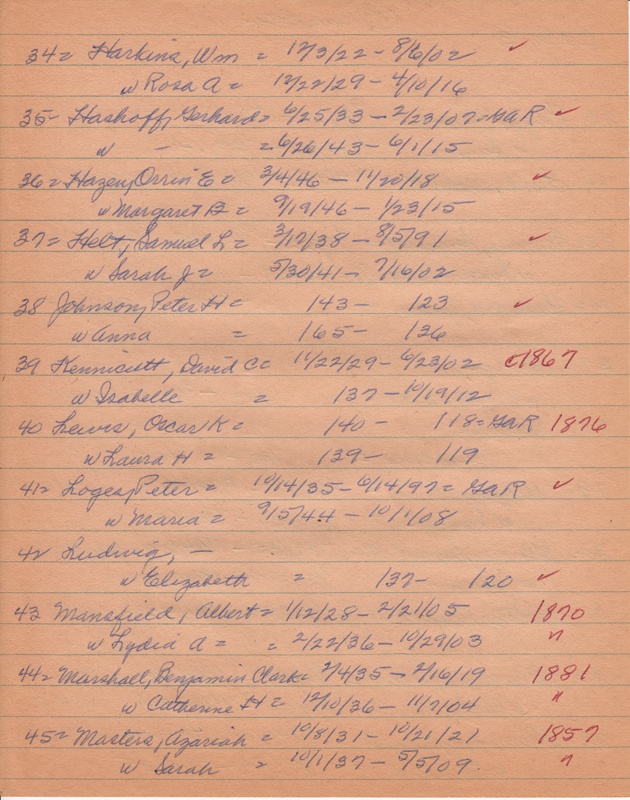 34= Harkins, Wm = 12/3/22 - 8/6/02 ✓
w Rosa A = 12/22/29 - 4/10/16
35- Hashoff, Gerhard = 6/25/33 - 2/23/07 = GaR ✓
w - = 6/26/43 - 6/1/15
36= Hazen, Orrin E = 3/4/46 - 11/20/18 ✓
w Margaret B = 9/19/46 - 1/23/15
37= Helt, Samuel L = 3/12/38 - 8/5/91 ✓
w Sarah J = 5/30/41 - 7/16/02
38 Johnson, Peter H = 143 - 123 ✓
w Anna = 165 - 136
39 Kennicott, David C = 11/22/29 - 6/23/02 c1867
w Isabelle = 137 - 10/19/12
40 Lewis, Oscar K = 140 - 118 = GaR 1876
w Laura H = 139 - 119
41= Loges, Peter = 10/14/35 - 6/14/97 = GaR ✓
w Maria = 9/5/44 - 10/1/08
42 Ludwig, -
w Elizabeth = 137 - 120 ✓
43 Mansfield, Albert = 1/12/28 - 2/21/05 1870
w Lydia A = = 2/22/36 - 10/29/03 "
44= Marshall, Benjamin Clark = 2/4/35 - 2/16/19 1881
w Catherine H = 12/10/36 - 11/2/04 "
45= Masters, Azariah = 10/8/31 - 10/21/21 1857
w Sarah = 10/1/37 - 5/5/09. "